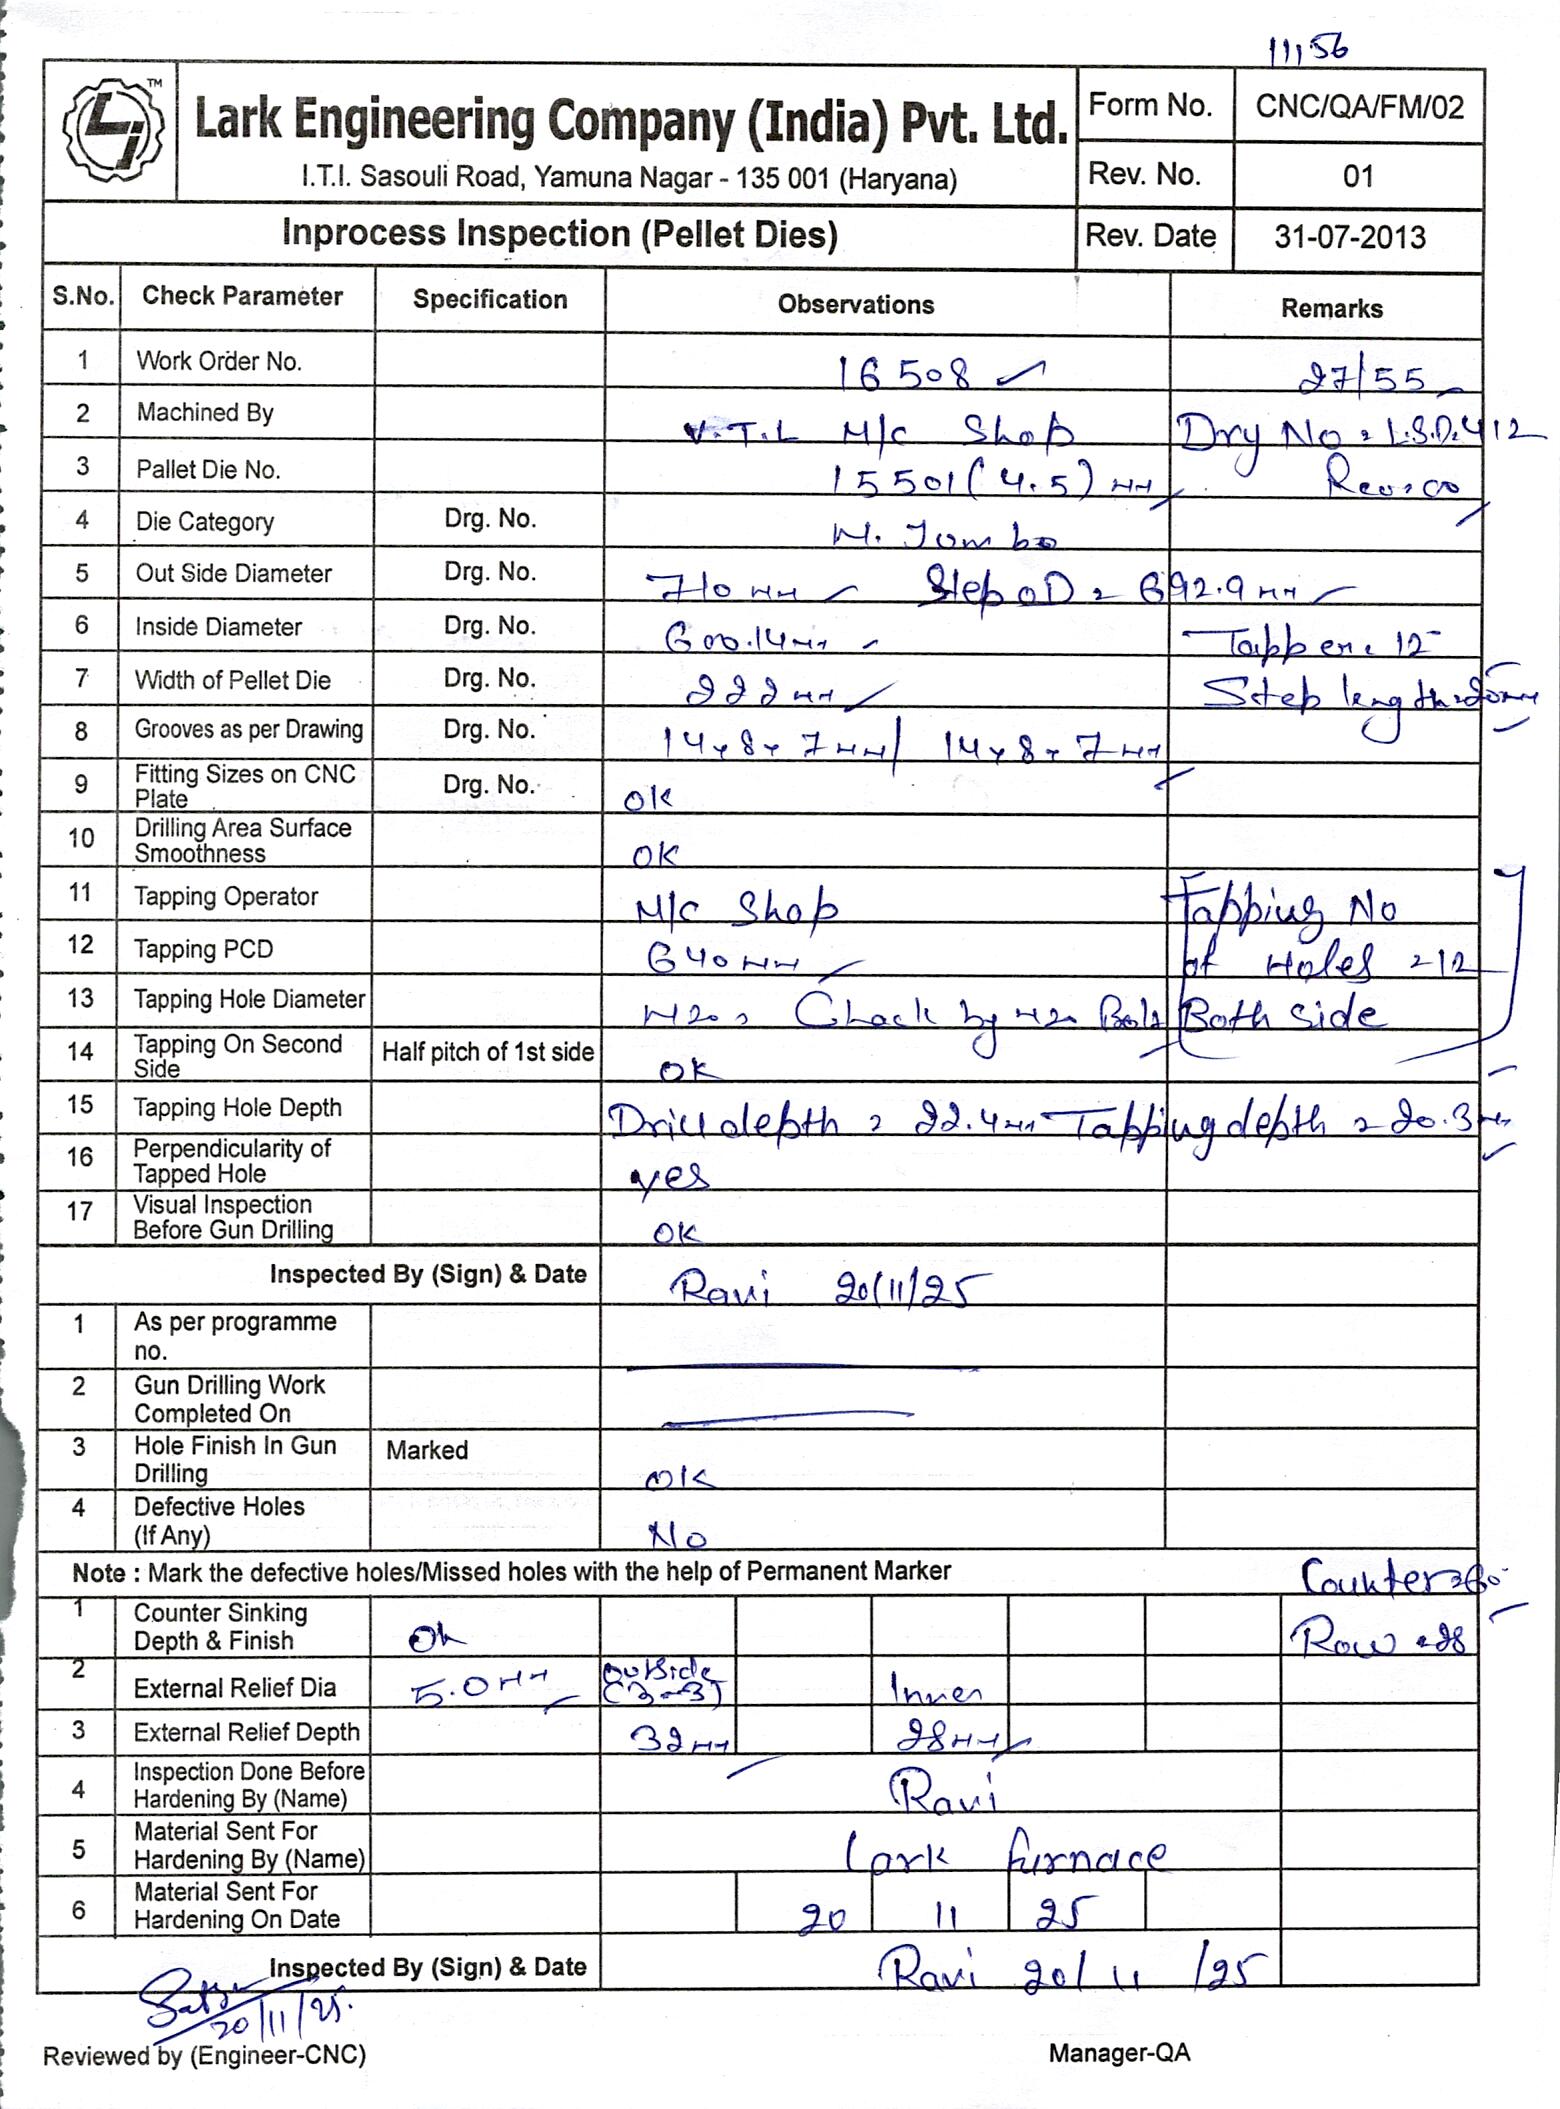 11156
TM
Lark Engineering Company (India) Pvt. Ltd.
I.T.I. Sasouli Road, Yamuna Nagar - 135 001 (Haryana)
Form No. CNC/QA/FM/02
Rev. No. 01
Inprocess Inspection (Pellet Dies) Rev. Date 31-07-2013
S.No. Check Parameter Specification Observations Remarks
1 Work Order No. 16508 27/55
2 Machined By V.T.L M/C Shop Dry No = L.S.D.412
3 Pallet Die No. 15501 (4.5) MM Rev=00
4 Die Category Drg. No. M. Jumbo
5 Out Side Diameter Drg. No. 710 MM Step OD = 692.9 MM
6 Inside Diameter Drg. No. 600.14 MM Tapper = 12
7 Width of Pellet Die Drg. No. 222 MM Step length = 20 MM
8 Grooves as per Drawing Drg. No. 14 x 8 x 7 MM / 14 x 8 x 7 MM
9 Fitting Sizes on CNC Plate Drg. No. OK
10 Drilling Area Surface Smoothness OK
11 Tapping Operator M/C Shop Tapping No
12 Tapping PCD 640 MM of Holes = 12
13 Tapping Hole Diameter M20 = Chack by M20 Bolt Both side
14 Tapping On Second Side Half pitch of 1st side OK
15 Tapping Hole Depth Drill depth = 22.4 MM Tapping depth = 20.3 MM
16 Perpendicularity of Tapped Hole yes
17 Visual Inspection Before Gun Drilling OK
Inspected By (Sign) & Date Ravi 20/11/25
1 As per programme no.
2 Gun Drilling Work Completed On
3 Hole Finish In Gun Drilling Marked OK
4 Defective Holes (If Any) No
Note : Mark the defective holes/Missed holes with the help of Permanent Marker Counter = 60
1 Counter Sinking Depth & Finish Ok Row = 28
2 External Relief Dia 5.0 MM outside (3-3) Inner
3 External Relief Depth 32 MM 28 MM
4 Inspection Done Before Hardening By (Name) Ravi
5 Material Sent For Hardening By (Name) Lark furnace
6 Material Sent For Hardening On Date 20 11 25
Inspected By (Sign) & Date Ravi 20/11/25
20/11/25.
Reviewed by (Engineer-CNC) Manager-QA